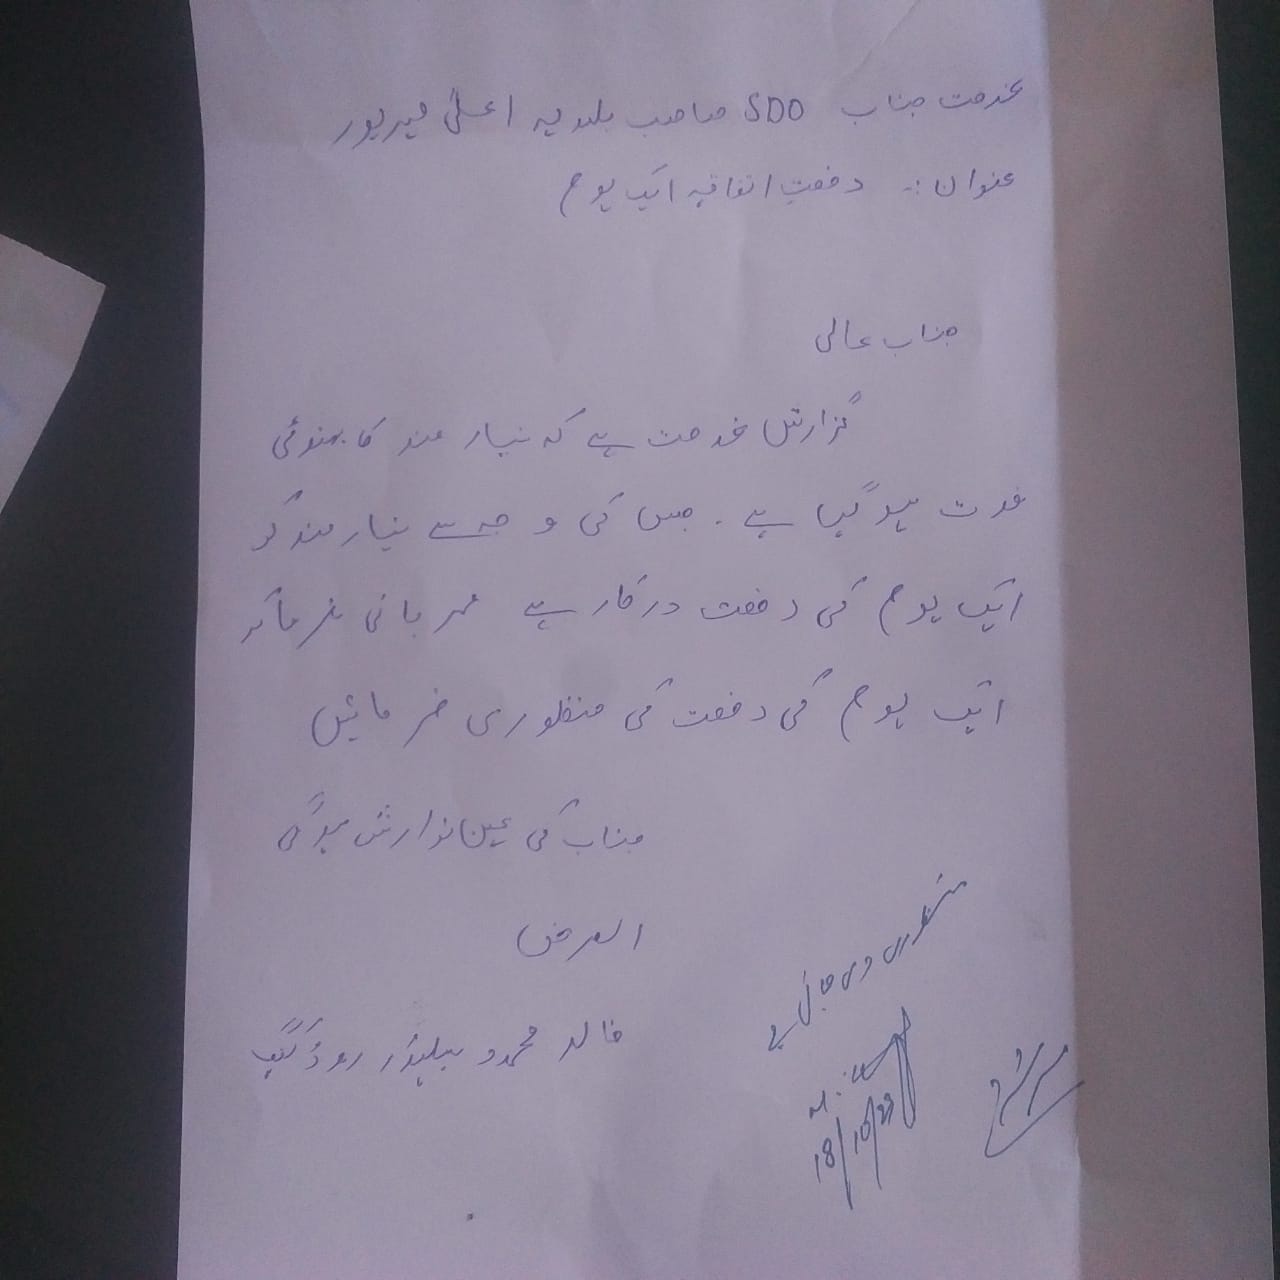 بخدمت جناب SDO صاحب بلدیہ اعلیٰ میرپور
عنوان :- رخصت اتفاقیہ ایک یوم
جناب عالی
گزارش خدمت ہے کہ نیاز مند کا بہنوئی
فوت ہو گیا ہے ۔ جس کی وجہ سے نیاز مند کو
ایک یوم کی رخصت درکار ہے مہربانی فرما کر
ایک یوم کی رخصت کی منظوری فرمائیں
جناب کی عین نوازش ہوگی
العرض
خالد محمود بیلدار روڈ گینگ
منظوری دی جاتی ہے
18/10/23